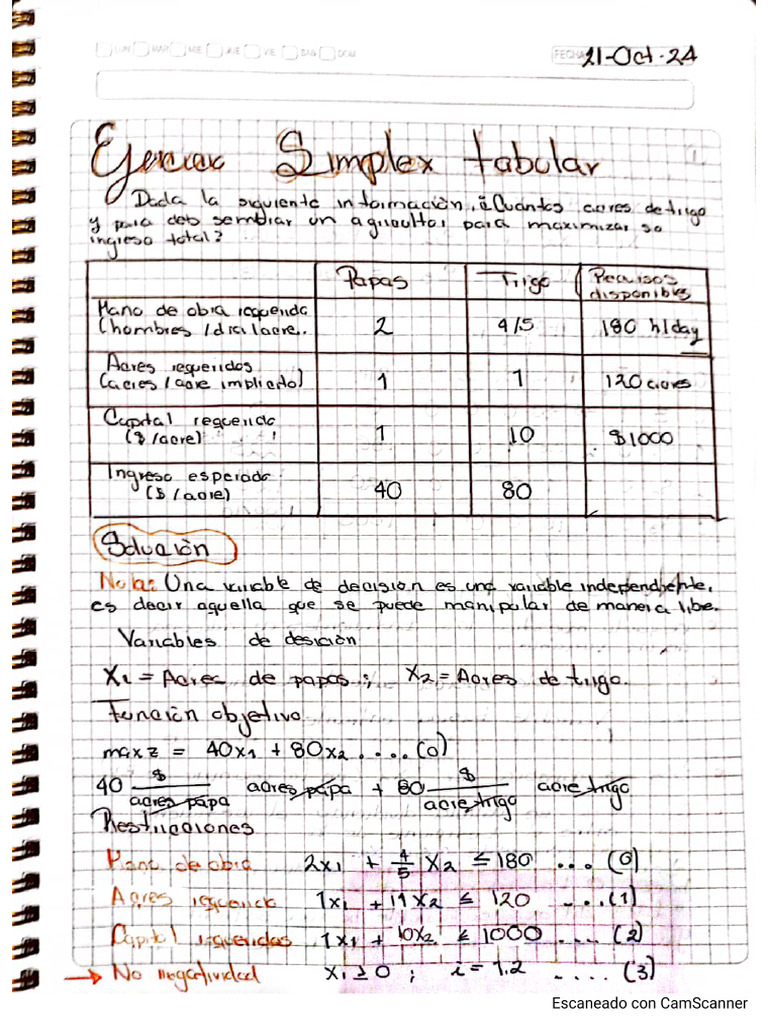 LUN MAR MIE JUE VIE SAB DOM
FECHA 21-Oct-24
Simplex tabular
Dada la siguiente información, ¿Cuántos acres de trigo
y papa debe sembrar un agricultor para maximizar so
ingreso total?
Papas Trigo Recursos disponibles
Mano de obra requerida (hombres/día/acre.. 2 4/5 180 h/day
Acres requeridos (acres/acre implicado) 1 1 120 acres
Capital requerido ($/acre) 1 10 $1000
Ingreso esperado ($/acre) 40 80
Solución
Nota: Una variable de decisión es una variable independiente,
es decir aquella que se puede manipular de manera libe.
Variables de desición
X1 = Acres de papas; X2 = Acres de trigo.
Función objetivo
max z = 40x1 + 80x2 ....(0)
40 $/acres papa acres papa + 80 $/acre trigo acre trigo
Restricciones
Mano de obra 2x1 + 4/5 X2 ≤ 180 ... (0)
Acres 1x1 + 11X2 ≤ 120 ...(1)
Capital requeridos 1x1 + 10x2 ≤ 1000 .... (2)
→ No negatividad xi ≥ 0 ; i = 1,2 .... (3)
Escaneado con CamScanner